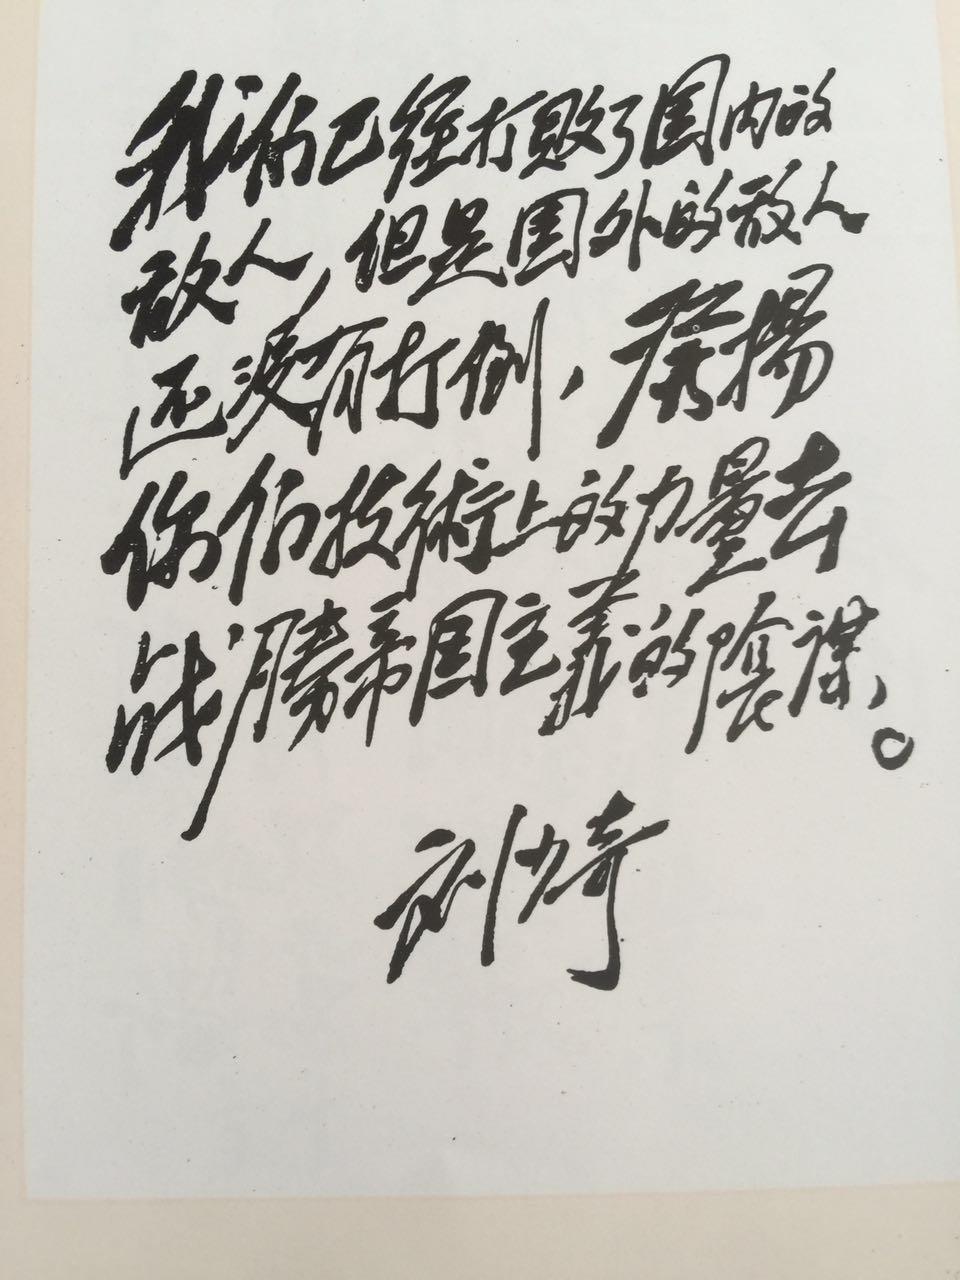 我们已经打败了国内的
敌人，但是国外的敌人
还没有打倒，发揚
你们技術上的力量去
战勝帝国主義的陰謀。
刘少奇